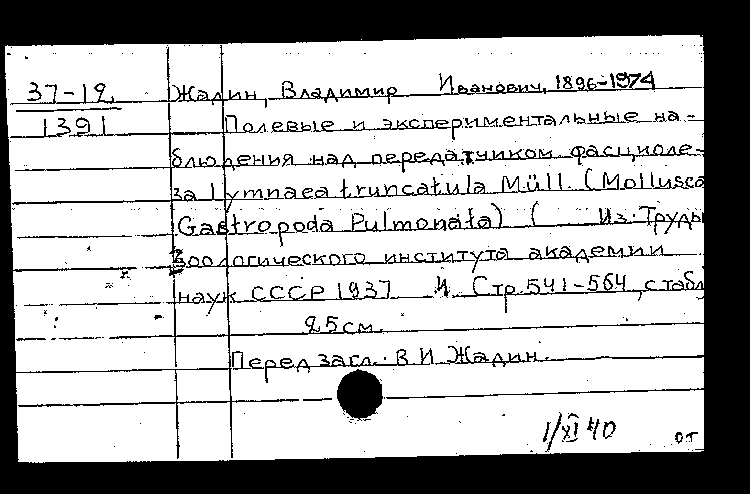 37-19 Жадин, Владимир Иванович, 1896-1974
1391 Полевые и экспериментальные на-
блюдения над передатчиком фасциоле-
за Lymnaea truncatula Müll. (Mollusca
Gastropoda Pulmonata) ( Из: Труды
Зоологического института академии
наук СССР 1937 Стр 541-564, с табл
25 см.
Перед загл. В И Жадин.
1/XI 40
от